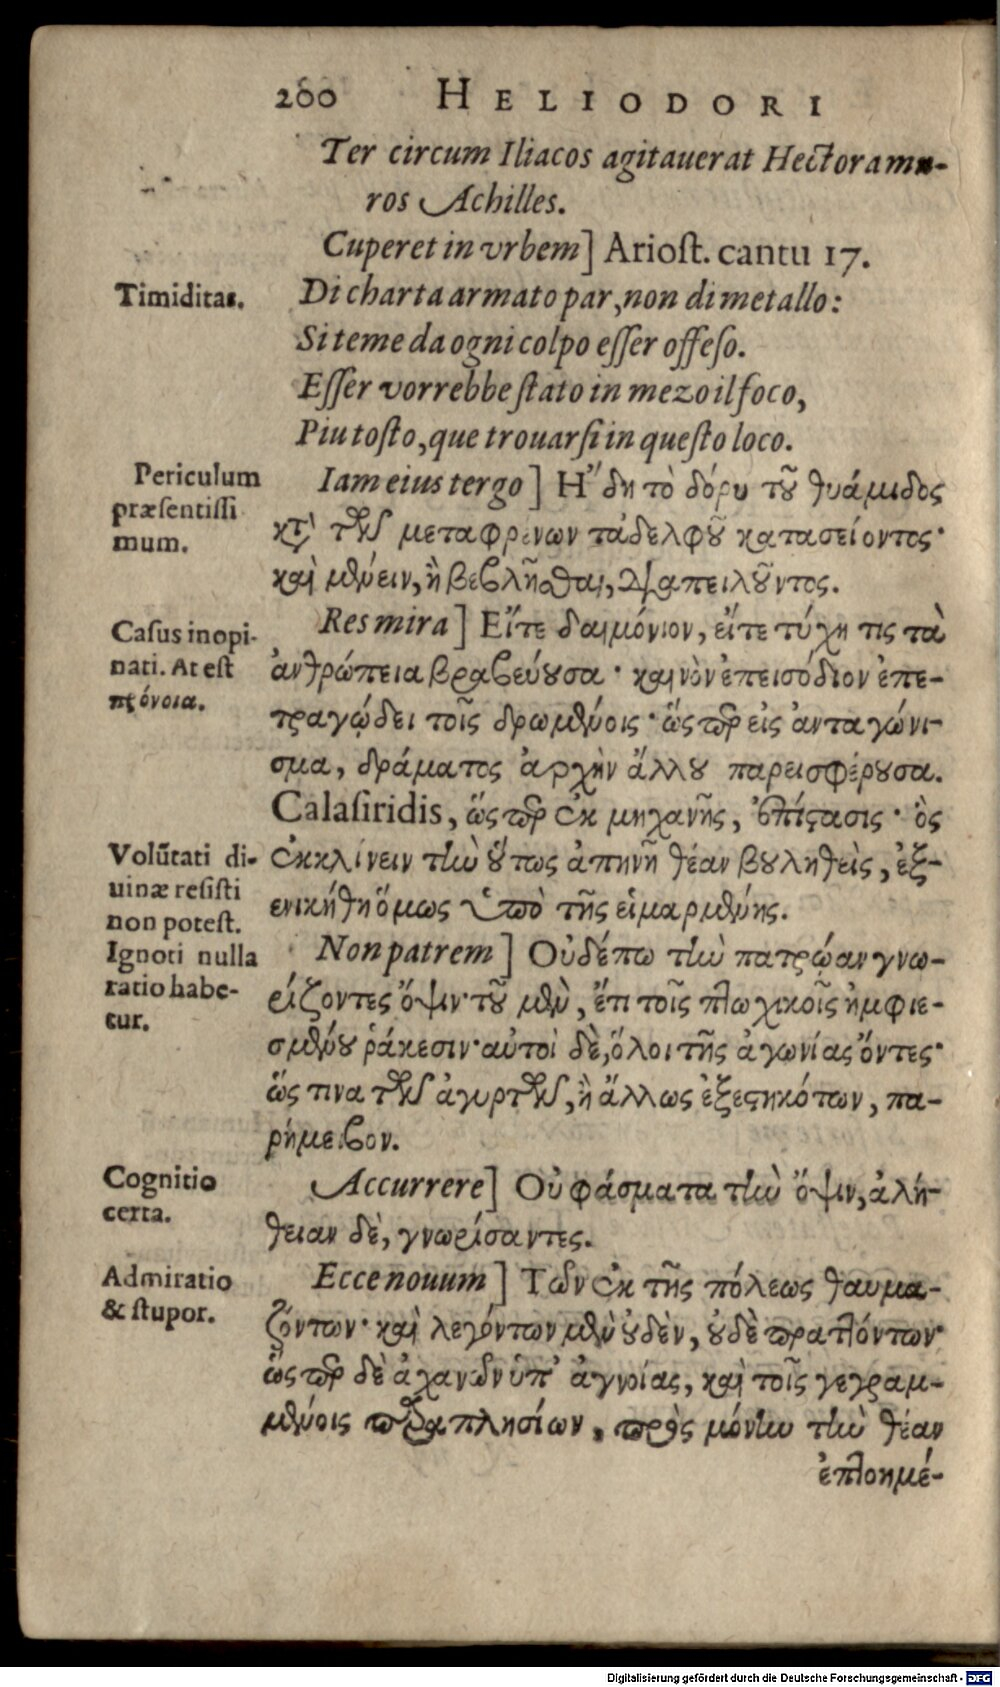 200 HELIODORI
Ter circum Iliacos agitauerat Hectora mu-
ros Achilles.
Cuperet in vrbem] Ariost. cantu 17.
Timiditas.
Di charta armato par, non di metallo:
Si teme da ogni colpo esser offeso.
Esser vorrebbe stato in mezo il foco,
Piu tosto, que trouarsi in questo loco.
Periculum
præsentissi
mum.
Iam eius tergo] Ἤδη τὸ δόρυ τοῦ θυάμιδος
κατὰ τῶν μεταφρένων τἀδελφοῦ κατασείοντος·
καὶ μένειν, ἢ βεβλῆσθαι, διαπειλοῦντος.
Casus inopi-
nati. At est
πρόνοια.
Res mira] Εἴτε δαιμόνιον, εἴτε τύχη τις τὰ
ἀνθρώπεια βραβεύουσα· καινὸν ἐπεισόδιον ἐπε-
τραγῴδει τοῖς δρωμένοις· ὥσπερ εἰς ἀνταγώνι-
σμα, δράματος ἀρχὴν ἄλλου παρεισφέρουσα.
Calasiridis, ὥσπερ ἐκ μηχανῆς, ἐπίστασις· ὃς
Volūtati di-
uinæ resisti
non potest.
ἐκκλίνειν τὴν οὕτως ἀπηνῆ θέαν βουληθεὶς, ἐξ-
ενικήθη ὅμως ὑπὸ τῆς εἱμαρμένης.
Ignoti nulla
ratio habe-
tur.
Non patrem] Οὐδέπω τὴν πατρῴαν γνω-
ρίζοντες ὄψιν· τοῦ μὲν, ἔτι τοῖς πτωχικοῖς ἠμφιε-
σμένου ῥάκεσιν· αὐτοὶ δὲ, ὅλοι τῆς ἀγωνίας ὄντες·
ὥς τινα τῶν ἀγυρτῶν, ἢ ἄλλως ἐξεστηκότων, πα-
ρήμειβον.
Cognitio
certa.
Accurrere] Οὐ φάσματα τὴν ὄψιν, ἀλή-
θειαν δὲ, γνωρίσαντες.
Admiratio
& stupor.
Ecce nouum] Τῶν ἐκ τῆς πόλεως θαυμα-
ζόντων· καὶ λεγόντων μὲν οὐδὲν, οὐδὲ πραττόντων·
ὥσπερ δὲ ἀχανῶν ὑπ' ἀγνοίας, καὶ τοῖς γεγραμ-
μένοις παραπλησίων, πρὸς μόνην τὴν θέαν
ἐπτοημέ-
Digitalisierung gefördert durch die Deutsche Forschungsgemeinschaft - DFG